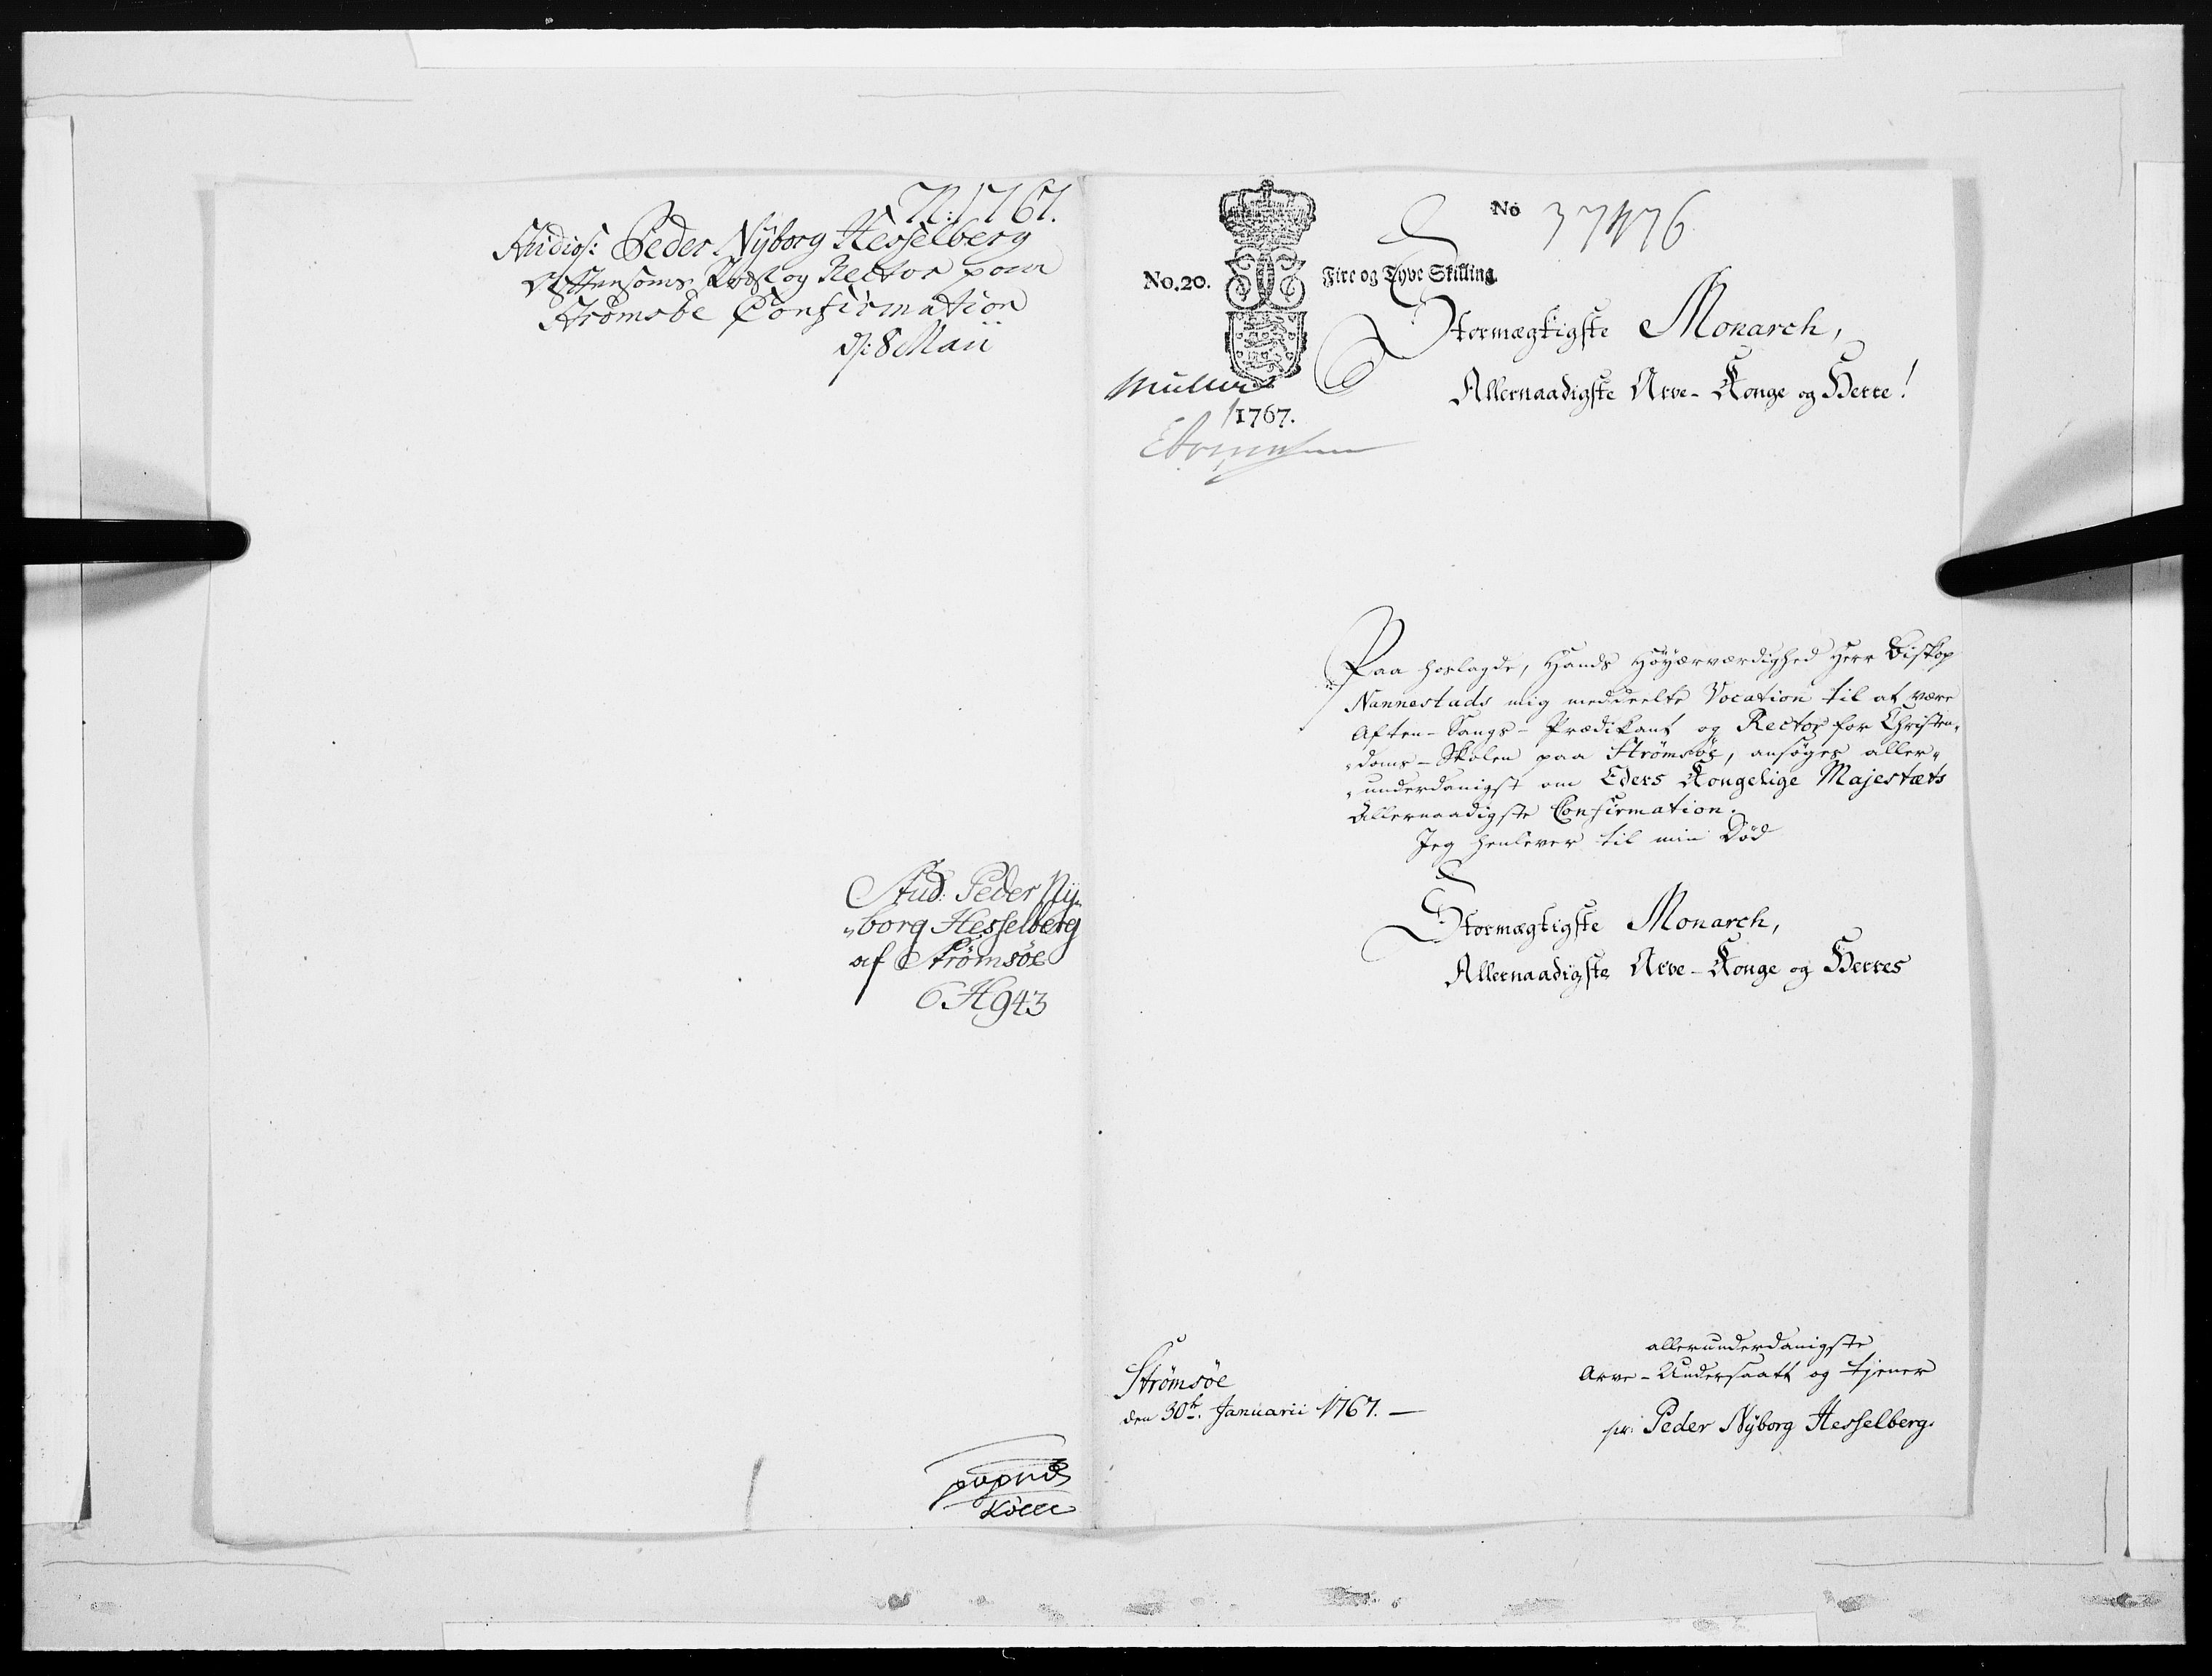 N: 1767.
Studios: Peder Nÿborg Hesselberg
Aftensoms Præd og Rector paa
Strömsöe Confirmation
d: 8 Maii
Stud: Peder Nÿ„
„borg Hesselberg
af Strömsöe
6 H 943
No 37476
No. 20.
Fire og Tyve Skilling
1767.
Stormægtigste Monarch,
Allernaadigste Arve-Konge og Herre!
Paa hoslagde, Hands Höyærværdighed Herr Biskop
Nannestads mig meddeelte Vocation til at være
Aften-Sangs-Prædikant og Rector for Christen„
„doms-Skolen paa Strömsöe, ansöges aller„
„underdanigst om Eders Kongelige Majestæts
Allernaadigste Confirmation.
Jeg henlever til min Död
Stormægtigste Monarch,
Allernaadigste Arve-Konge og Herres
Strömsöe
den 30te. Januarii 1767. —
allerunderdanigste
Arve-Undersaatt og tjener
Peder Nÿborg Hesselberg.